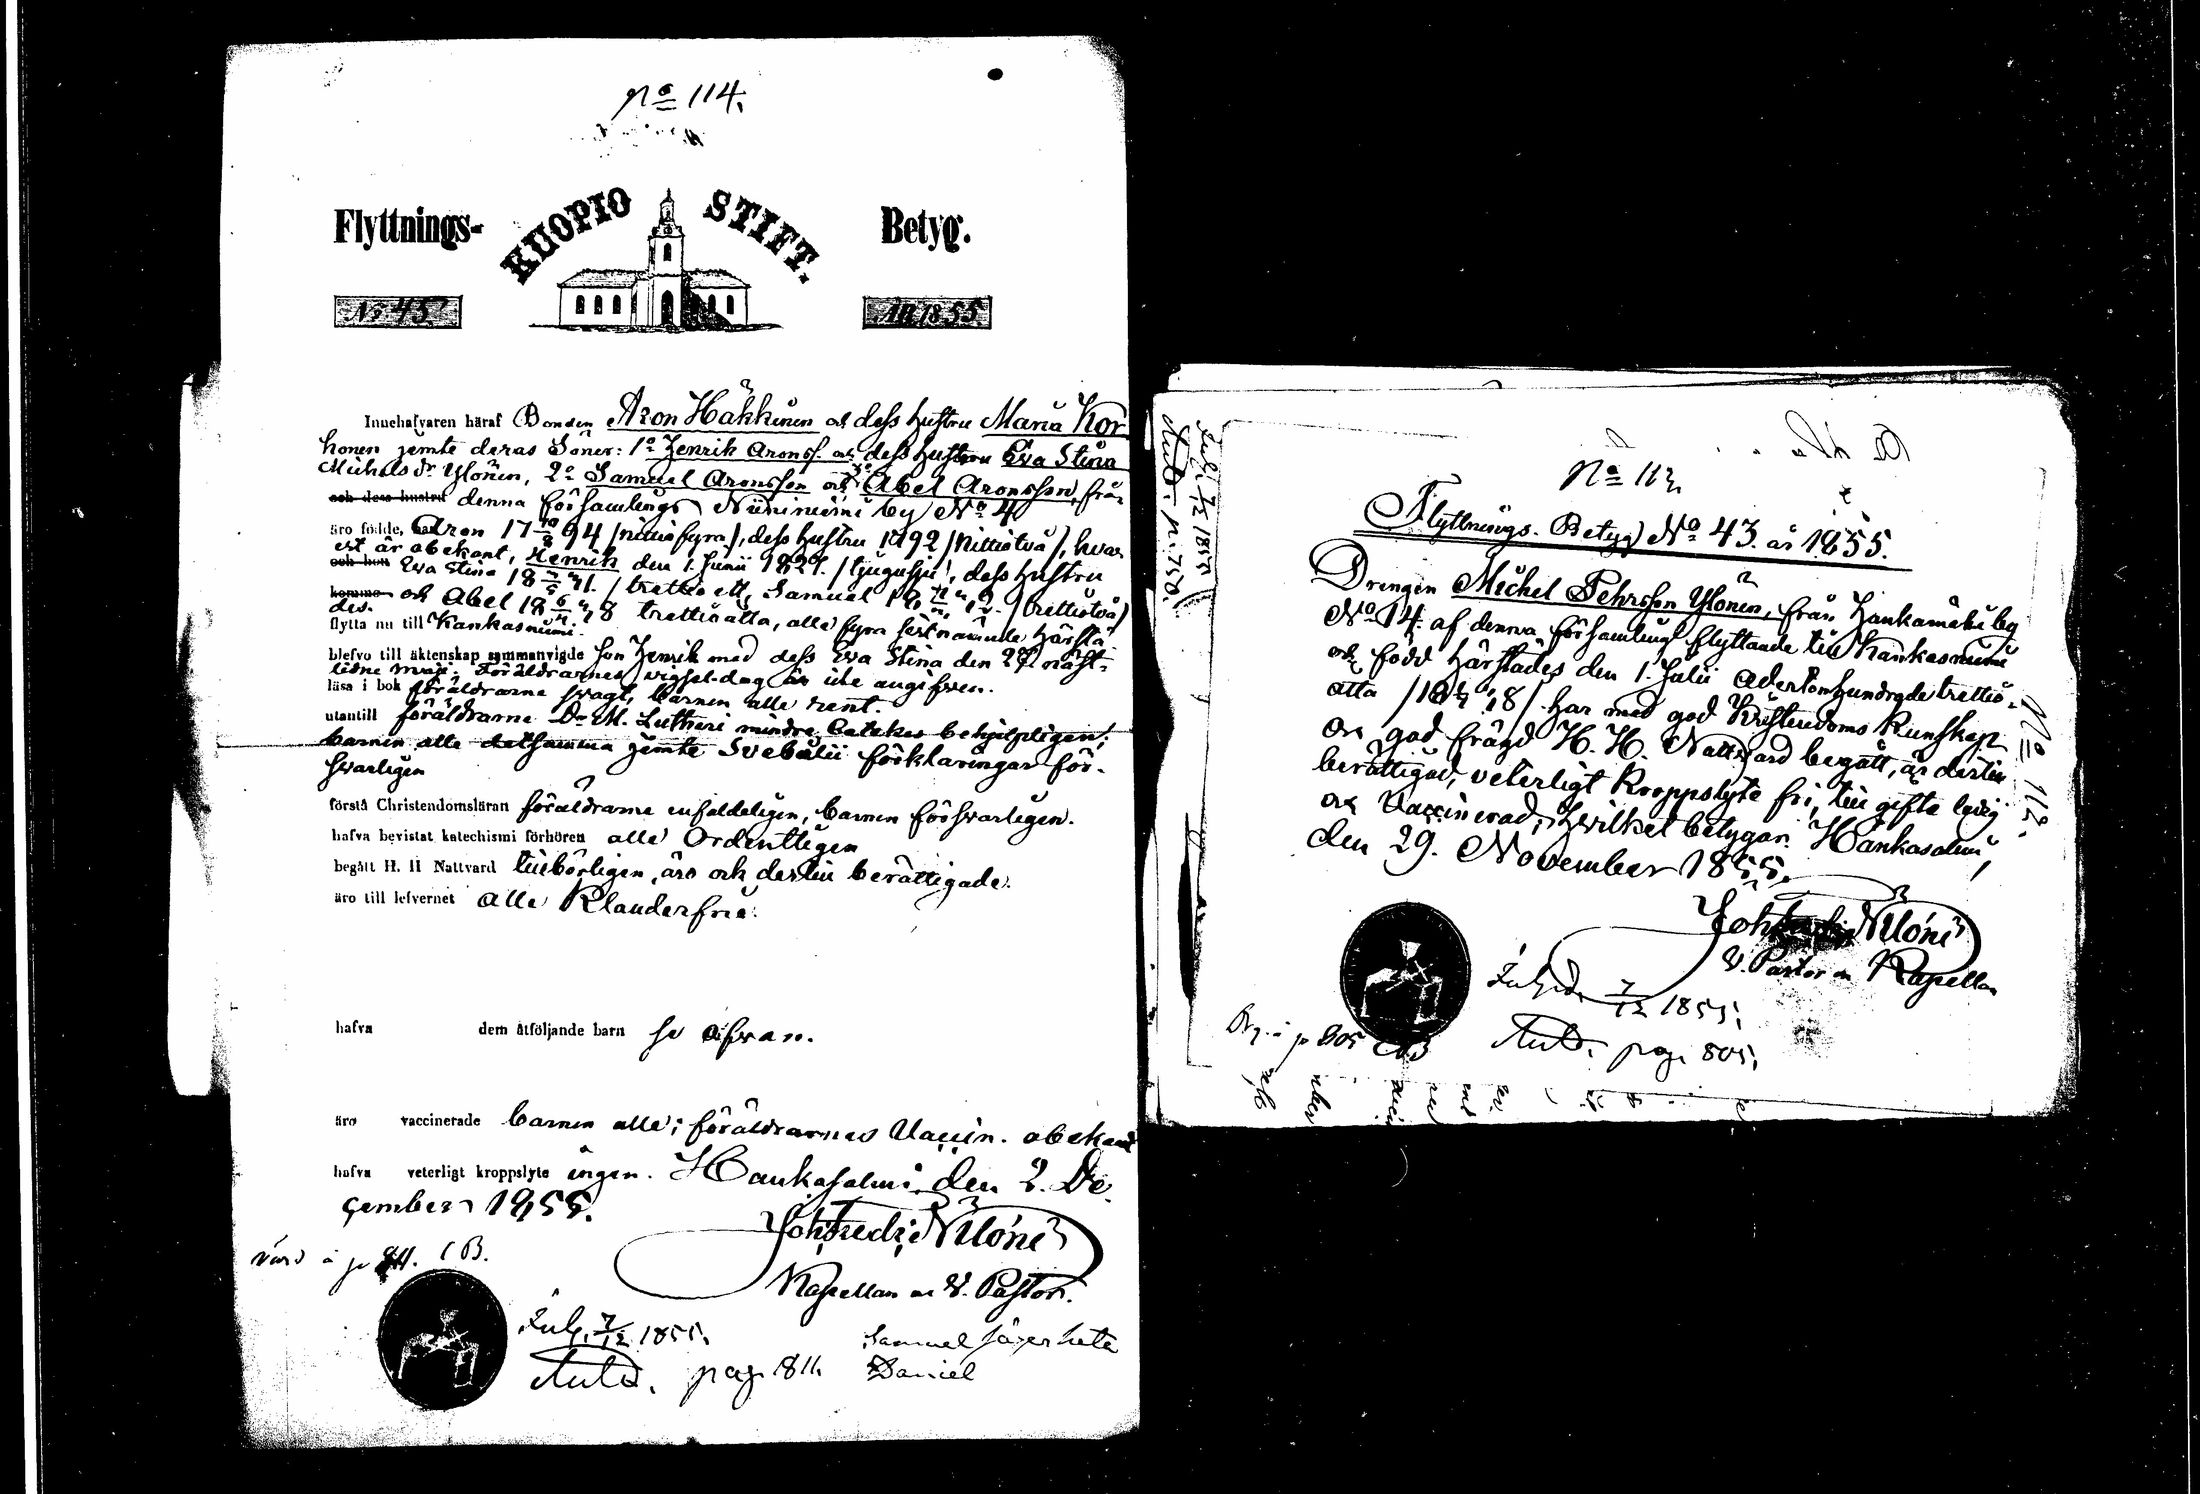 No 114.
Flyttnings- KUOPIO STIFT. Betyg.
No 45. ÅR 1855.
Innehafvaren häraf Bonden Aron Häkkinen och dess hustru Maria Kor
honen jemte deras Söner: 1o Henrik Aronss. och dess hustru Eva Stina
Michelsdr Ylönen, 2o Samuel Aronsson och 3o Abel Aronsson, från
och dess hustru denna församlings Niinimäki by No 4
äro födde, Aron 17 94 /nittiofyra/, dess hustru 1792 /Nittiotvå/, hvar
est är obekant, Henrik den 1. Junii 1827. /tjugusju/, dess hustru
och hon Eva Stina 18 31. /trettio ett, Samuel 18 /trettiotvå/
komma och Abel 18 38 trettioåtta, alla fyra sistnämnde härstä
des.
flytta nu till Kankasniemi.
blefvo till äktenskap sammanvigde son Henrik med dess Eva Stina den 27 näst-
lidne maji, Föräldrarnes vigsel-dag är icke angifven.
läsa i bok föräldrarne svagt, barnen alle rent.
utantill föräldrarne Dr M. Lutheri mindre Cateches behjelpligen;
barnen alle detsamma jemte Svebilii förklaringar för-
svarligen
förstå Christendomsläran föräldrarne enfaldeligen, barnen försvarligen.
hafva bevistat katechismi förhören alle Ordentligen
begått H. H Nattvard tillbörligen, äro och dertill berättigade.
äro till lefvernet alle Klanderfria.
hafva dem åtföljande barn se ofvan.
äro vaccinerade barnen alle; föräldrarnes Vaccin. obekant
hafva veterligt kroppslyte ingen. Hankasalmi den 2. De
cember 1855.
Joh Fredr Nylóne
Kapellan o V. Pastor.
p 811. CB.
7/12 1855.
pag. 811.
Samuel
Daniel
No 112.
Flyttnings-Betyg No 43. år 1855.
Drengen Michel Pehrsson Ylönen, från Hankamäki by
No 14. af denna församling flyttande till Kankasniemi
och född härstädes den 1. Julii Adertonhundradetrettio-
åtta /18 38/ har med god Kristendoms Kunskap
och god frägd H. H. Nattvard begått, är dertill
berättigad, veterligt kroppslyte fri, till gifte ledig
och Vaccinerad; hvilket betygar. Hankasalmi,
den 29. November 1855.
Joh Fredr Nylóne
V. Pastor o Kapellan
7/12 1855.
pag. 805.
p 805 CB
No 112.